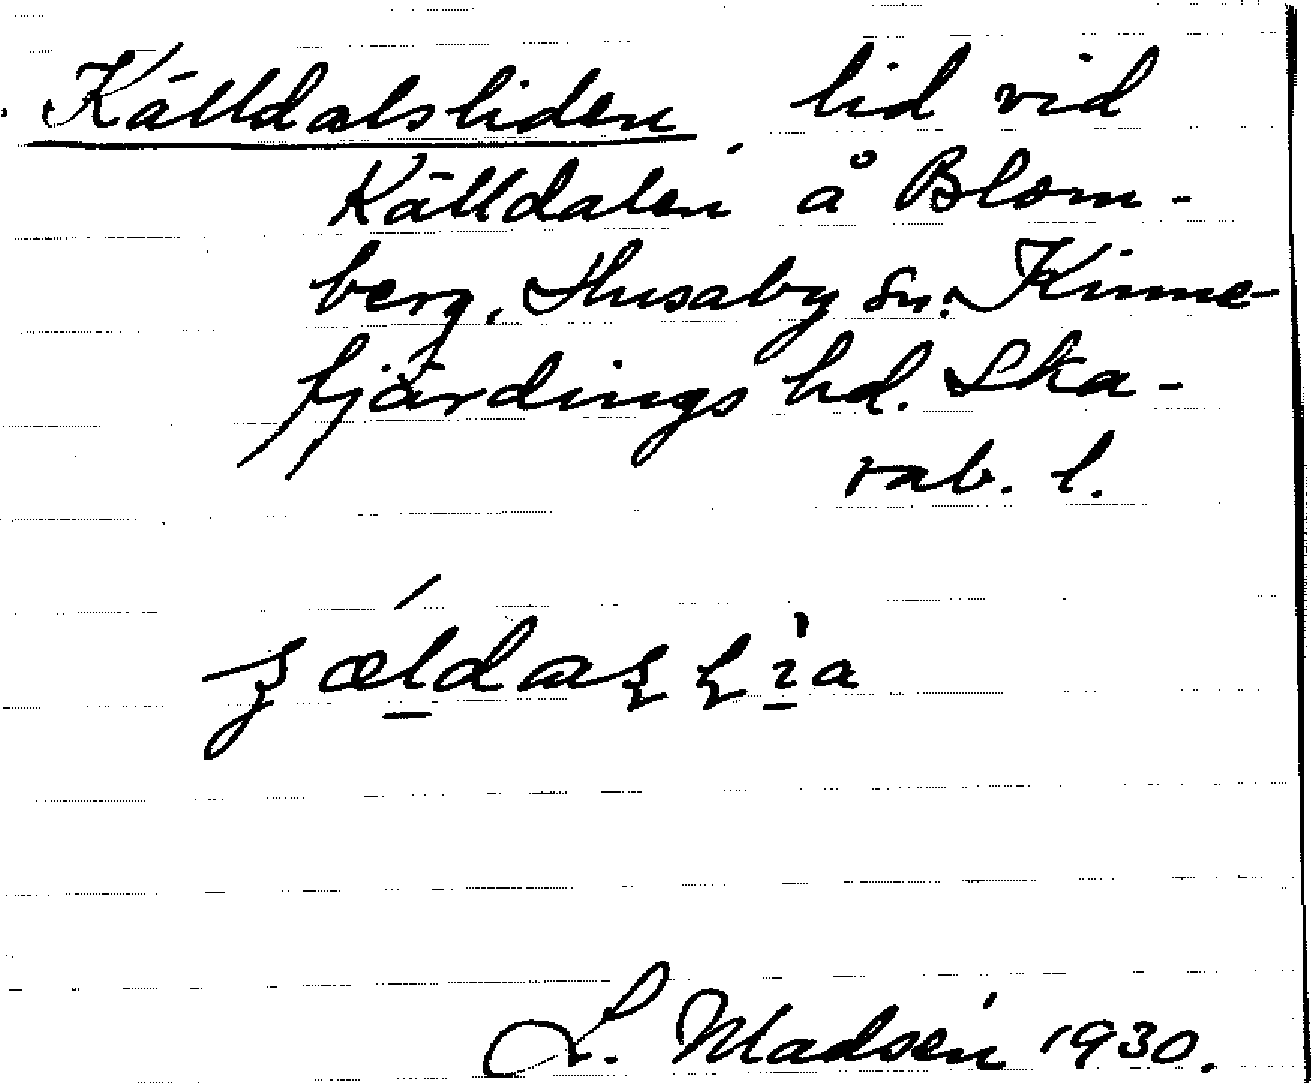 Källdalsliden, lid vid
Källdalen å Blom-
berg, Husaby sn. Kinne-
fjärdings hd. Ska-
rab. l.
L. Madsén 1930.